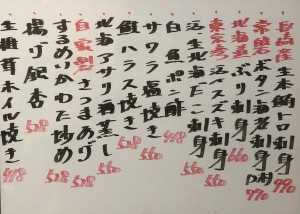 長崎産 生本鮪トロ刺身 990
常磐 ボタン海老刺身 D付 990
北海道 ぶり刺身 660
東京湾 活〆スズキ刺身 660
活生北海だこ刺身 560
白魚ポン酢 418
サワラ塩焼き 560
鮭ハラス焼き 528
北海アサリ酒蒸し 550
自家製 さつまあげ 528
するめいかわた炒め 528
揚げ銀杏 528
生椎茸ホイル焼き 418